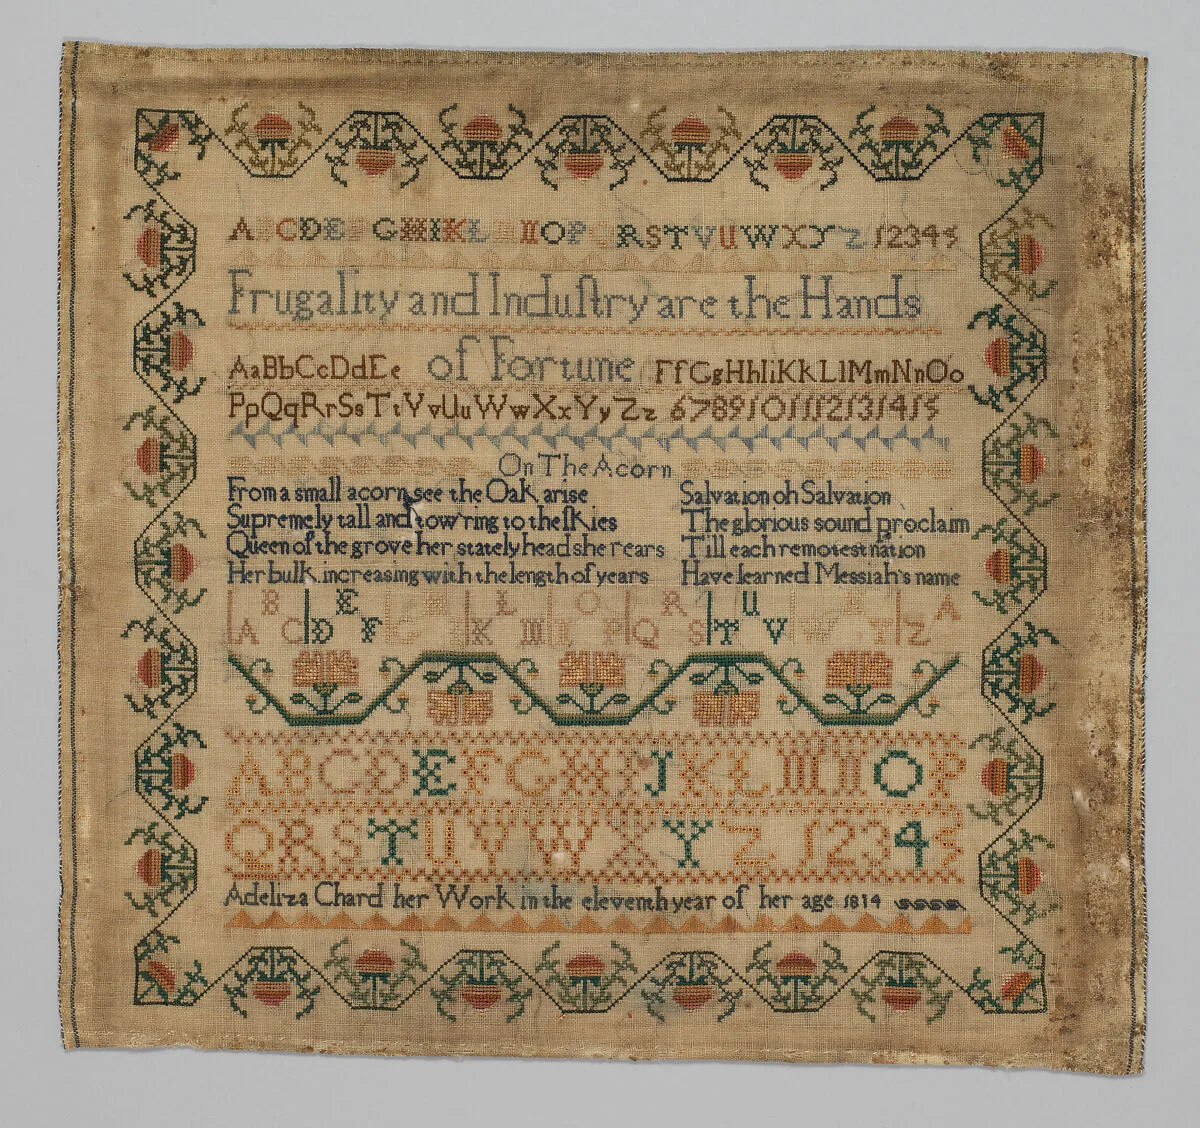 A B C D E F G H I K L M N O P Q R S T V U W X Y Z 1 2 3 4 5
Frugality and Induſtry are the Hands
AaBbCcDdEe of Fortune FfGgHhIiKkLlMmNnOo
PpQqRrSsTtVvUuWwXxYyZz 6789101112131415
On The Acorn
From a small acorn see the Oak arise
Supremely tall and tow'ring to the ſkies
Queen of the grove her stately head she rears
Her bulk increasing with the length of years
Salvation oh Salvation
The glorious sound proclaim
Till each remotest nation
Have learned Messiah's name
A B C D E F G H K L M O P Q R S T U V W X Y Z A
A B C D E F G H I J K L M N O P
Q R S T U V W X Y Z 1 2 3 4 5
Adeliza Chard her Work in the eleventh year of her age 1814